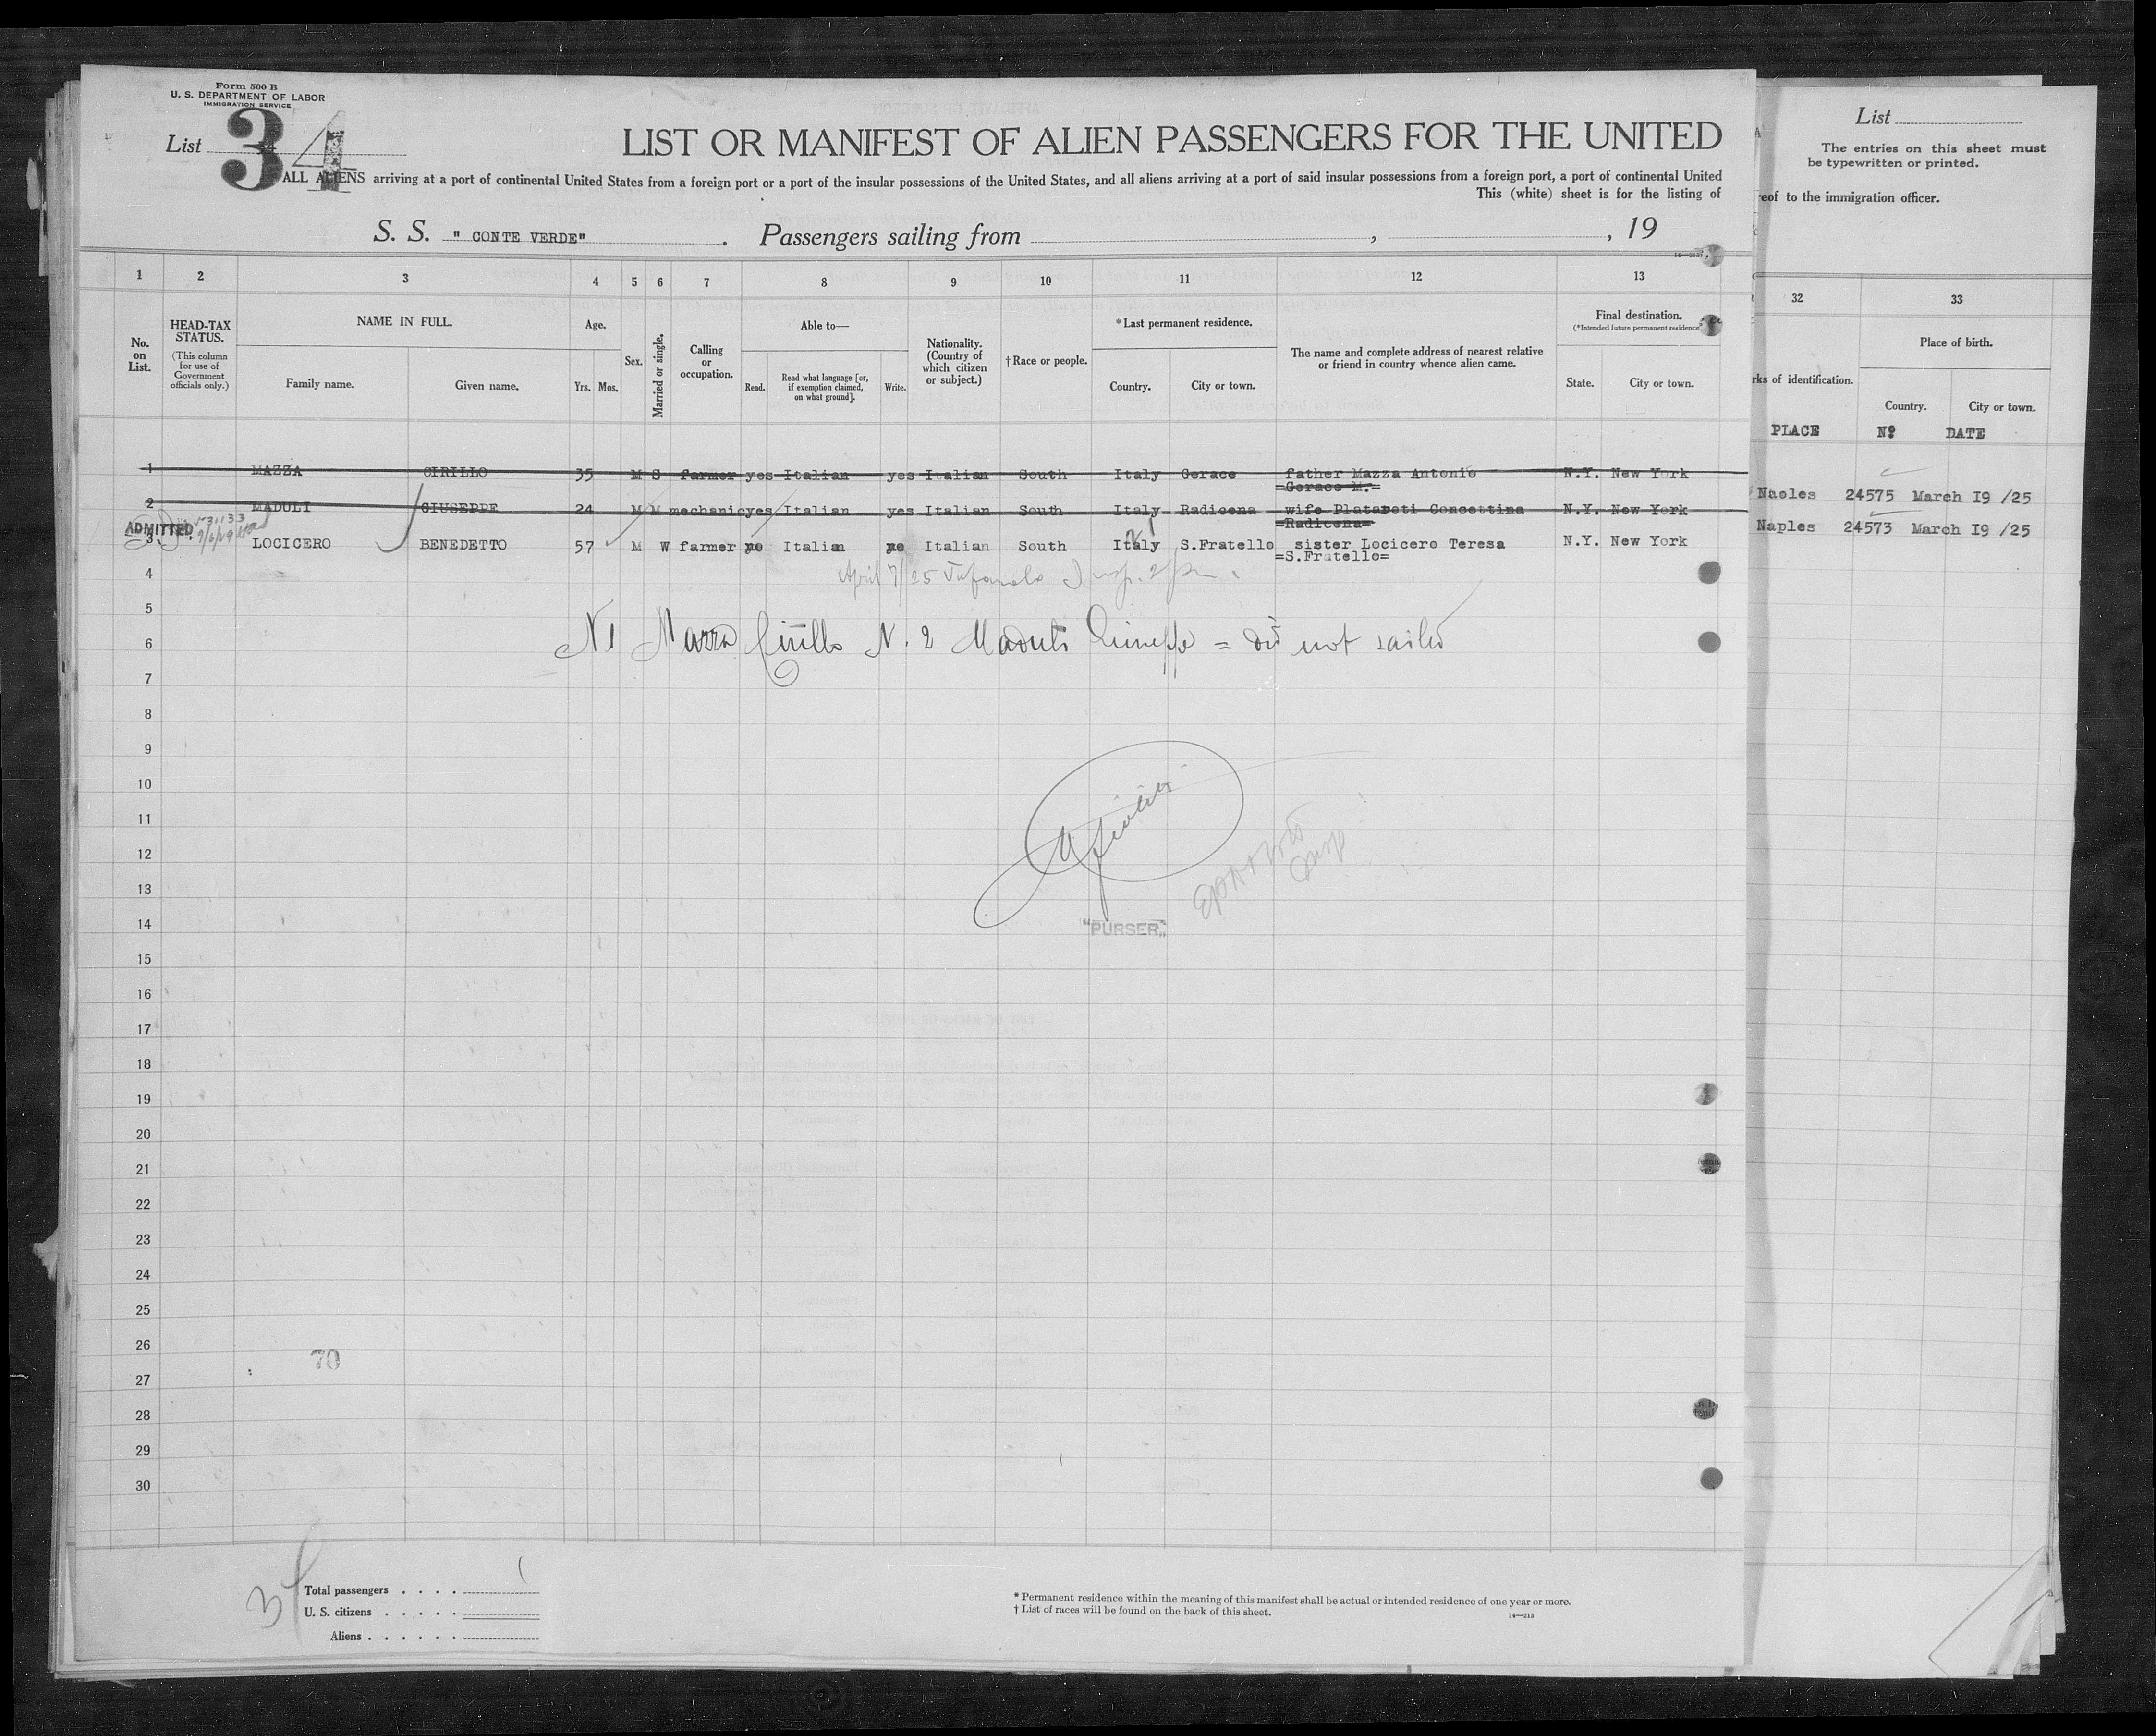 Form 500 B
U. S. DEPARTMENT OF LABOR
IMMIGRATION SERVICE
List 34
LIST OR MANIFEST OF ALIEN PASSENGERS FOR THE UNITED
ALL ALIENS arriving at a port of continental United States from a foreign port or a port of the insular possessions of the United States, and all aliens arriving at a port of said insular possessions from a foreign port, a port of continental United
This (white) sheet is for the listing of
S. S. " CONTE VERDE" . Passengers sailing from , , 19
1 2 3 4 5 6 7 8 9 10 11 12 13
No. on List.
HEAD-TAX STATUS.
(This column for use of Government officials only.)
NAME IN FULL.
Family name. Given name.
Age.
Yrs. Mos.
Sex.
Married or single.
Calling or occupation.
Able to—
Read. Read what language [or, if exemption claimed, on what ground]. Write.
Nationality. (Country of which citizen or subject.)
† Race or people.
* Last permanent residence.
Country. City or town.
The name and complete address of nearest relative or friend in country whence alien came.
Final destination.
(* Intended future permanent residence)
State. City or town.
1 MAZZA CIRILLO 35 M S farmer yes Italian yes Italian South Italy Gerace father Mazza Antonio N.Y. New York
=Gerace M.=
2 MADULI GIUSEPPE 24 M M mechanic yes Italian yes Italian South Italy Radicena wife Plataroti Concettina N.Y. New York
=Radicena=
ADMITTED
3 LOCICERO BENEDETTO 57 M W farmer no Italian Italian South Italy S.Fratello sister Locicero Teresa N.Y. New York
=S.Fratello=
4
April 7/25
5
6 N 1 Mazza Cirillo N. 2 Maduli Giuseppe = did not sailed
7
8
9
10
11
12
13
14
"PURSER"
15
16
17
18
19
20
21
22
23
24
25
26
70
27
28
29
30
34
Total passengers . . . . 1
U. S. citizens . . . . .
Aliens . . . . . .
* Permanent residence within the meaning of this manifest shall be actual or intended residence of one year or more.
† List of races will be found on the back of this sheet.
14—213
List
The entries on this sheet must
be typewritten or printed.
reof to the immigration officer.
32 33
rks of identification.
Place of birth.
Country. City or town.
PLACE Nº DATE
Naples 24575 March I9 /25
Naples 24573 March I9 /25